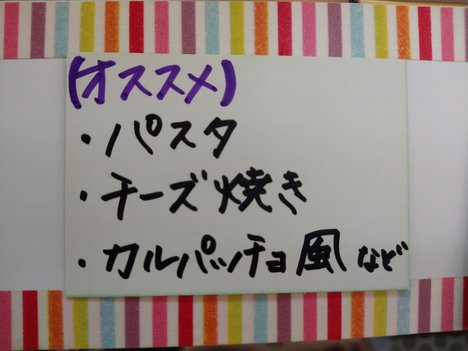 (オススメ)
・パスタ
・チーズ焼き
・カルパッチョ風など